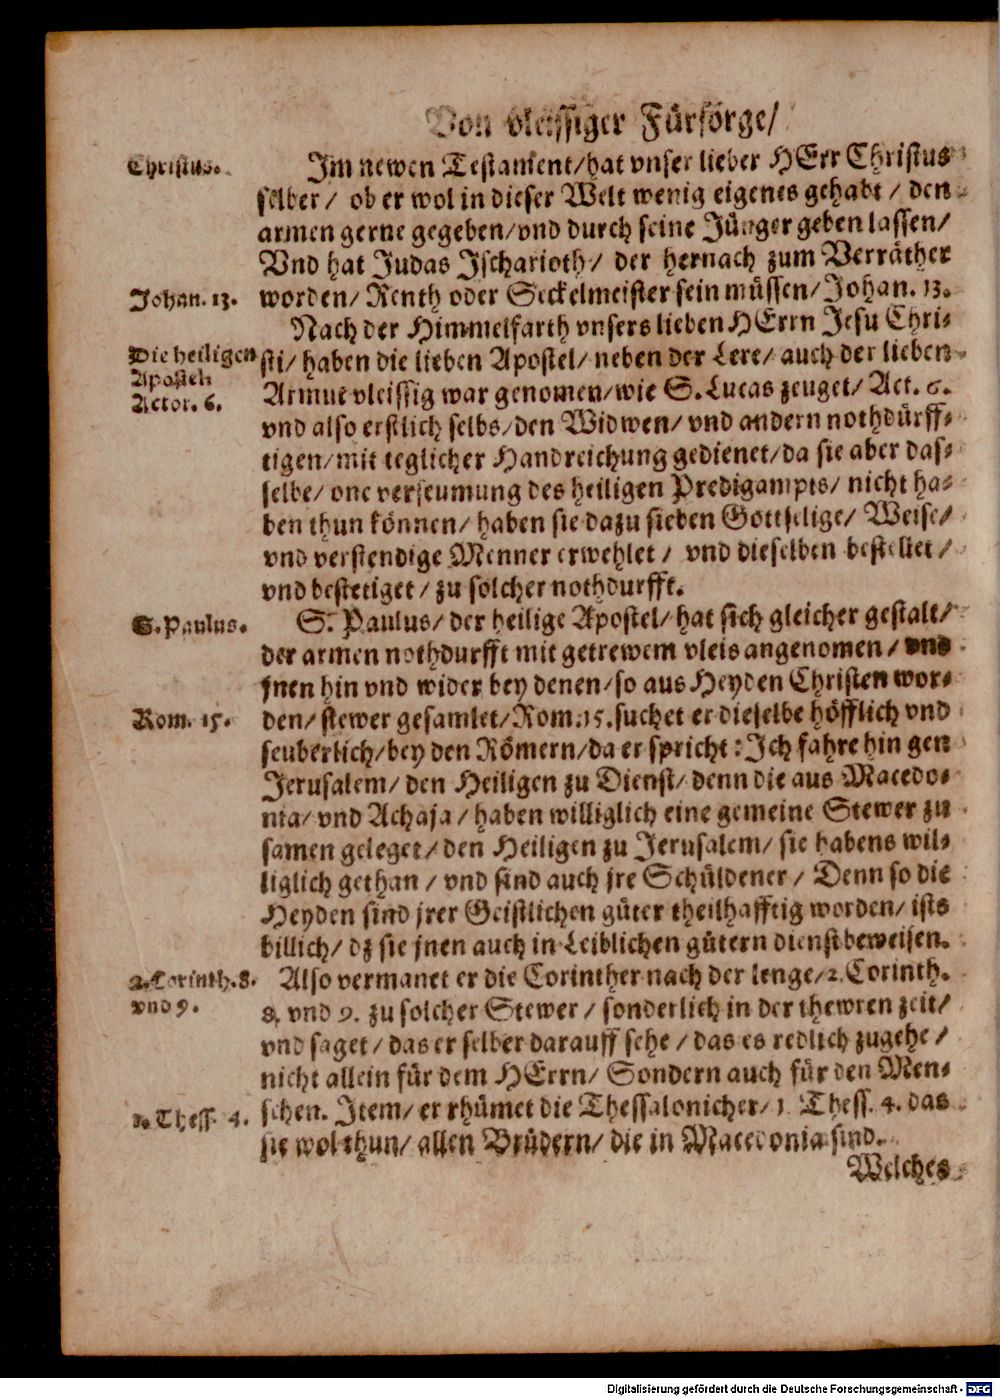 Von vleissiger Fürsorge/
Christus.
Im newen Testament/hat vnser lieber HErr Christus
selber/ ob er wol in dieser Welt wenig eigenes gehabt/ den
armen gerne gegeben/vnd durch seine Jünger geben lassen/
Vnd hat Judas Jscharioth/ der hernach zum Verräther
Johan. 13.
worden/ Renth oder Seckelmeister sein müssen/Johan. 13.
Nach der Himmelfarth vnsers lieben HErrn Jesu Chri-
Die heiligen
Aposteln
Actor. 6.
sti/ haben die lieben Apostel/ neben der Lere/ auch der lieben
Armut vleissig war genomen/wie S. Lucas zeuget/ Act. 6.
vnd also erstlich selbs/den Widwen/ vnd andern nothdürff-
tigen/mit teglicher Handreichung gedienet/da sie aber das-
selbe/ one verseumung des heiligen Predigampts/ nicht ha-
ben thun können/ haben sie dazu sieben Gottselige/ Weise/
vnd verstendige Menner erwehlet/ vnd dieselben bestellet/
vnd bestetiget/ zu solcher nothdurfft.
S. Paulus.
S. Paulus/ der heilige Apostel/ hat sich gleicher gestalt/
der armen nothdurfft mit getrewem vleis angenomen/ vnd
jnen hin vnd wider bey denen/so aus Heyden Christen wor-
Rom. 15.
den/ stewer gesamlet/Rom. 15. suchet er dieselbe höfflich vnd
seuberlich/bey den Römern/da er spricht: Jch fahre hin gen
Jerusalem/ den Heiligen zu Dienst/ denn die aus Macedo-
nia/ vnd Achaja/ haben williglich eine gemeine Stewer zu
samen geleget/ den Heiligen zu Jerusalem/ sie habens wil-
liglich gethan/ vnd sind auch jre Schüldener/ Denn so die
Heyden sind jrer Geistlichen güter theilhafftig worden/ ists
billich/ dz sie jnen auch in Leiblichen gütern dienst beweisen.
2. Corinth. 8.
vnd 9.
Also vermanet er die Corinther nach der lenge/2. Corinth.
8. vnd 9. zu solcher Stewer/ sonderlich in der thewren zeit/
vnd saget/ das er selber darauff sehe/ das es redlich zugehe/
nicht allein für dem HErrn/ Sondern auch für den Men-
1. Thess. 4.
schen. Jtem/ er rhümet die Thessalonicher/ 1. Thess. 4. das
sie wol thun/ allen Brüdern/ die in Macedonia sind.
Welches
Digitalisierung gefördert durch die Deutsche Forschungsgemeinschaft - DFG